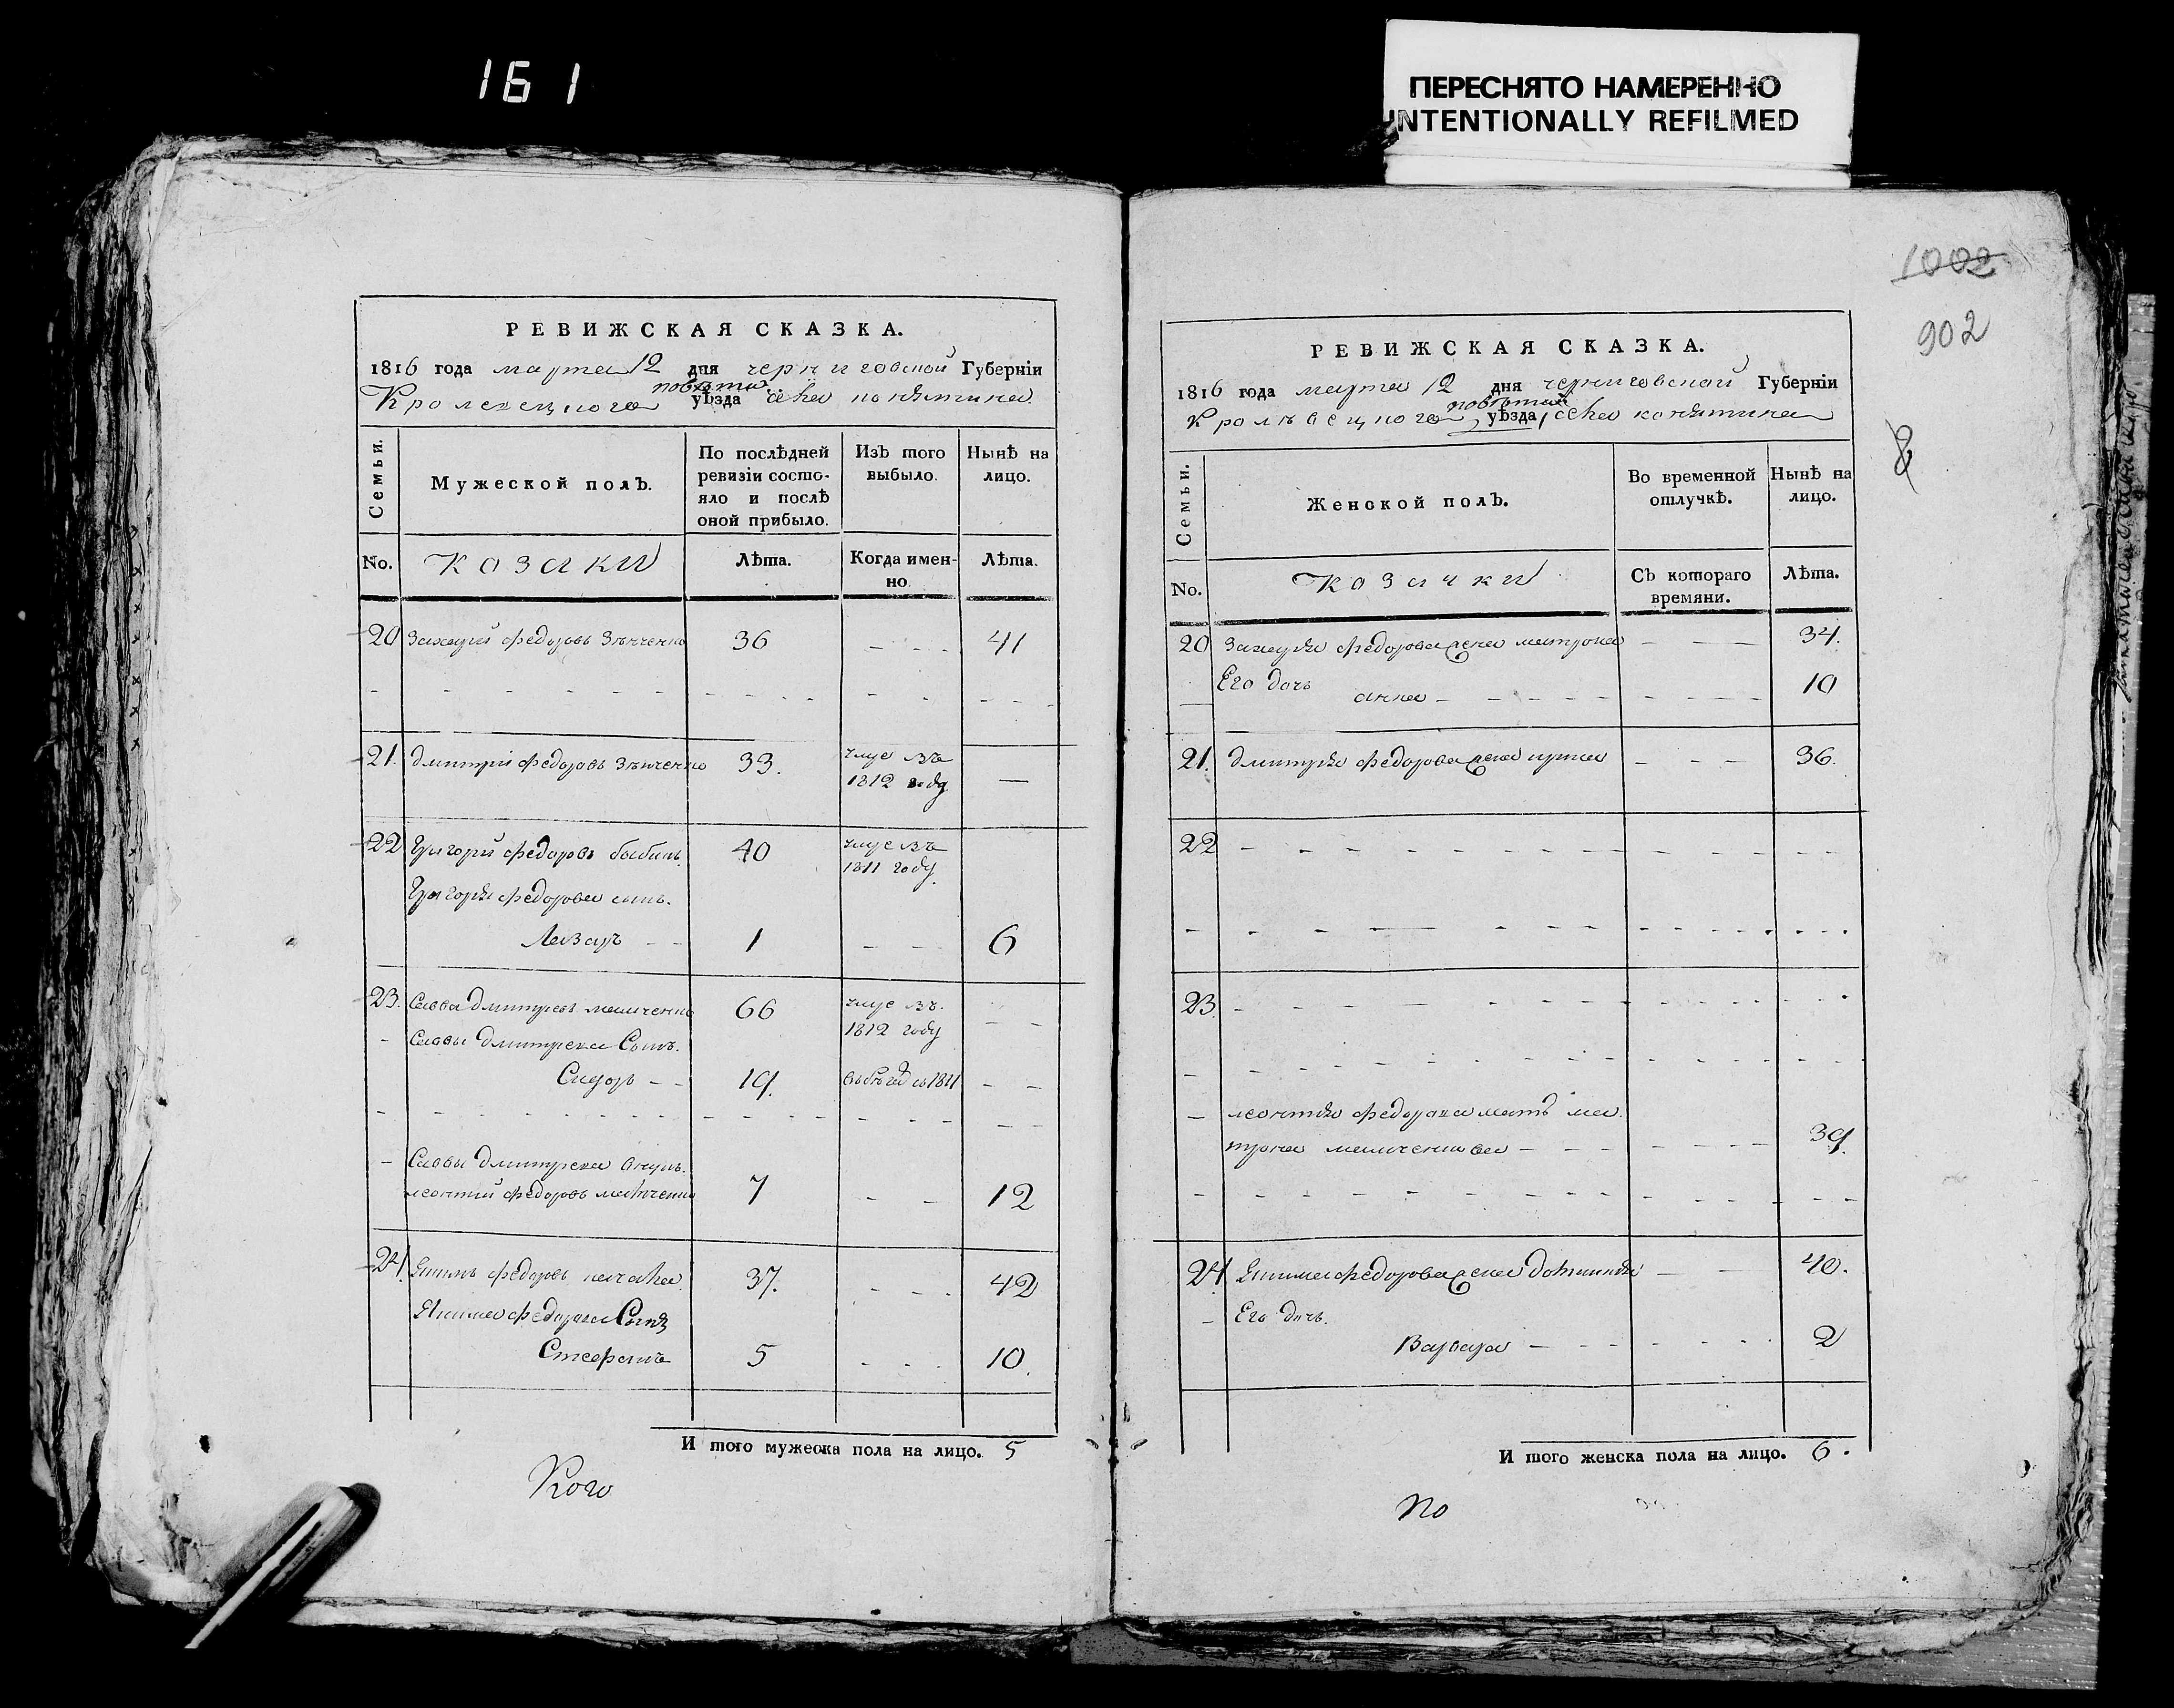 161
ПЕРЕСНЯТО НАМЕРЕННО
INTENTIONALLY REFILMED
РЕВИЖСКАЯ СКАЗКА.
1816 года марта 12 дня черниговской Губерніи
повѣта
Кролевецкого уѣзда села конятина
Семьи.
Мужеской полъ.
По послѣдней ревизіи состо-
яло и послѣ
оной прибыло.
Изъ того
выбыло.
Нынѣ на
лицо.
No.
козаки
Лѣта.
Когда имен-
но
Лѣта.
20 Захарий федоровъ Зѣнченко 36 41
21. дмитрій федоровъ Зѣнченко 33. умре въ
1812 году —
22 Григорій федоровъ бабичъ. 40 умре въ
1811 году.
Григорія федорова сынъ.
Лазарь 1 6
23. Савва дмитревъ 66 умре въ.
1812 году
Саввы дмитрева Сынъ.
Сидоръ 19. 1811
Саввы дмитрева внукъ.
леонтий федоровъ 7 12
24. Якимъ федоровъ 37. 42
Якима федорова Сынъ
Стефанъ 5 10.
И того мужеска пола на лицо. 5
Кого
1002
902
РЕВИЖСКАЯ СКАЗКА.
1816 года марта 12 дня черниговской Губерніи
повѣта
Кролѣвецкого уѣзда, села конятина
Семьи.
Женской полъ.
Во временной
отлучкѣ.
Нынѣ на
лицо.
No.
Козачки
Съ котораго
времяни.
Лѣта.
20 Захария федорова жена матрона 34.
Его дочь
анна 10
21. дмитрія федорова жена 36.
22
23.
леонтия федорова мать ма
трона 39.
24 Якима федорова жена 40.
Его дочь.
Варвара 2
И того женска пола на лицо. 6.
по